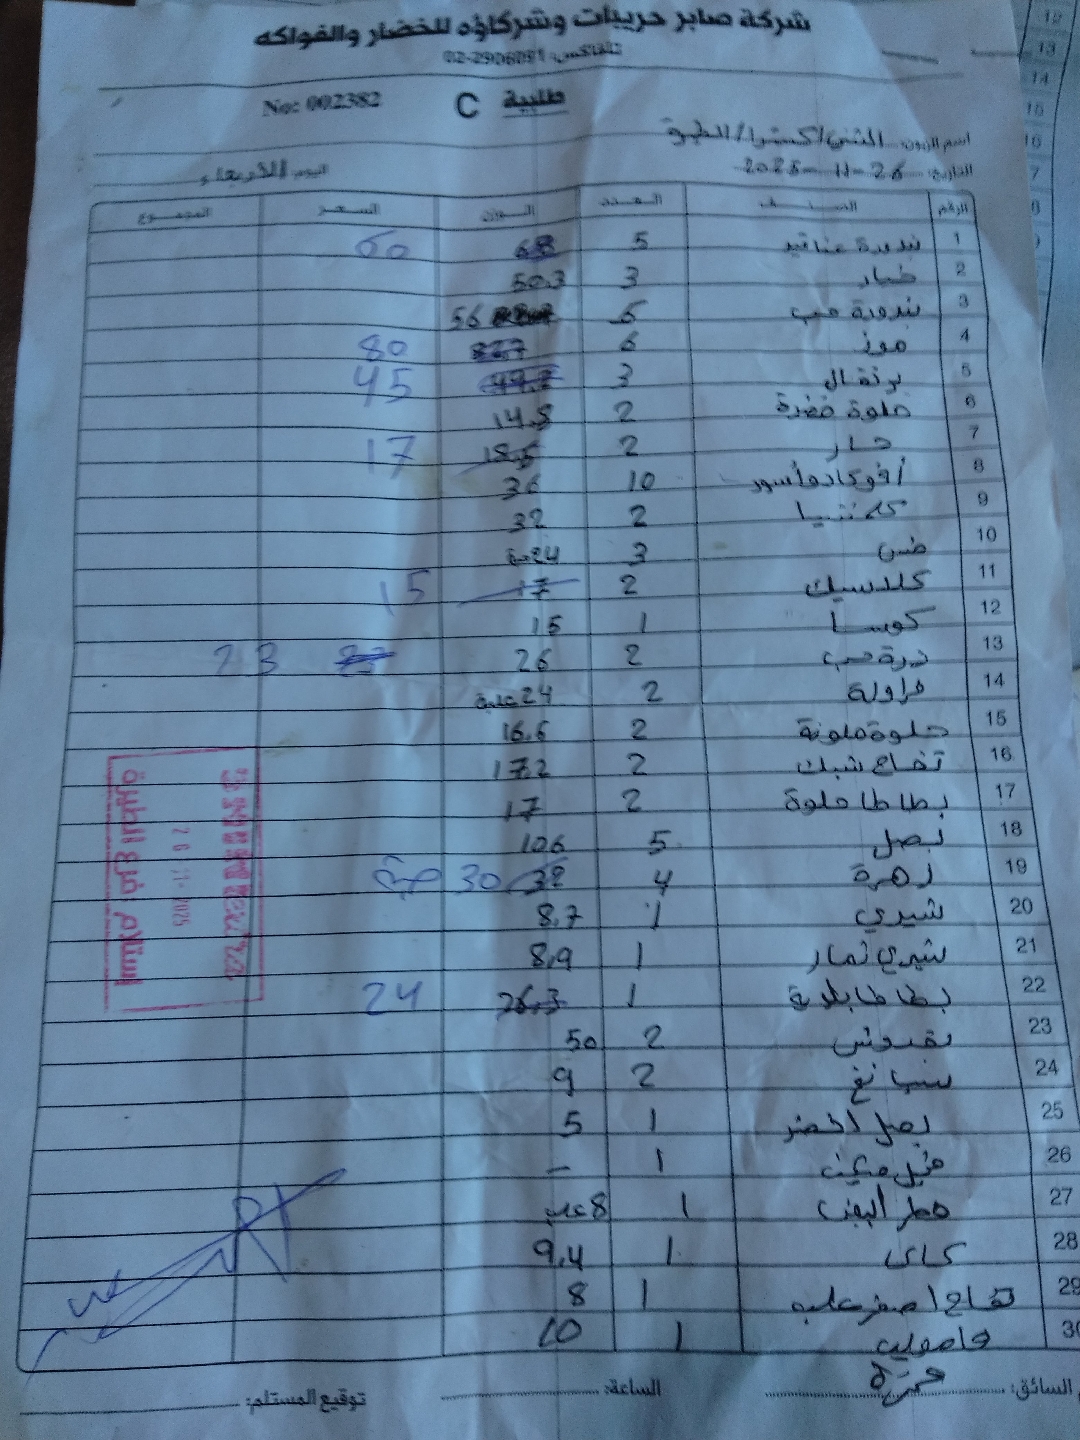 شركة صابر حريبات وشركاؤه للخضار والفواكه
تلفاكس: 02-2906091
No: 002382 C طلبية
اسم الزبون:
التاريخ: 26-11-2025 اليوم: الأربعاء
الرقم الصنف العدد الوزن السعر المجموع
1 بندورة عناقيد 5 68 60
2 خيار 3 50.3
3 بندورة حب 6 56
4 موز 6 80
5 برتقال 3 49.2 45
6 حلوة خضرة 2 14.8
7 حار 2 18.5 17
8 10 36
9 كلمنتينا 2 32
10 خس 3 24
11 2 17 15
12 كوسا 1 15
13 ذرة حب 2 26 23
14 فراولة 2 24 علبة
15 حلوة ملونة 2 16.6
16 تفاح 2 17.2
17 بطاطا حلوة 2 17
18 بصل 5 106
19 زهرة 4 32 30
20 شيري 1 8.7
21 شيري 1 8.9
22 بطاطا 1 26.3 24
23 بقدونس 2 50
24 سبانخ 2 9
25 بصل أخضر 1 5
26 1 –
27 فطر أبيض 1 8 علب
28 كاكا 1 9.4
29 تفاح اصفر 1 8
30 فاصوليا 1 10
استلام فرع الطيرة
26-11-2025
السائق: حمزة الساعة: توقيع المستلم: